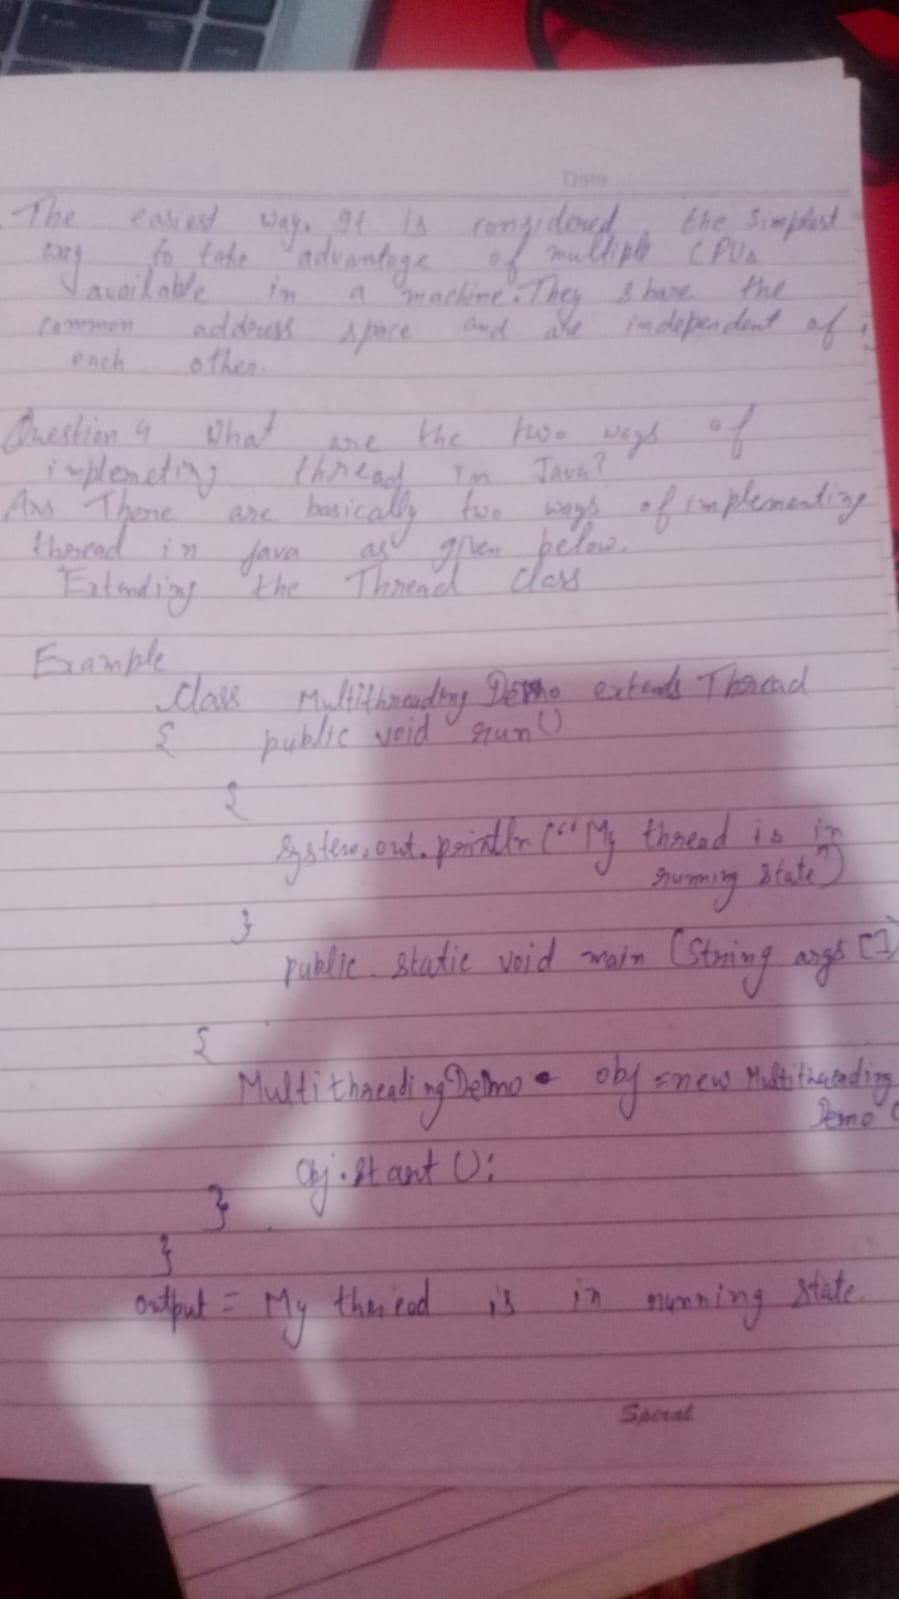 Date
The easiest way. It is considered the simplest
way to take advantage of multiple CPUs
available in a machine. They share the
common address space and are independent of
each other.
Question 4 What are the two ways of
implemeting thread in Java?
Ans There are basically two ways of implementing
thread in java as given below.
Extending the Thread class
Example
class Multithreading Demo extends Thread
{ public void run()
{
System.out.println ("My thread is in
running state")
}
public static void main (String args []
{
MultithreadingDemo obj =new Multithreading
Demo (
obj.start ():
}
}
output = My thread is in running state.
Spiral